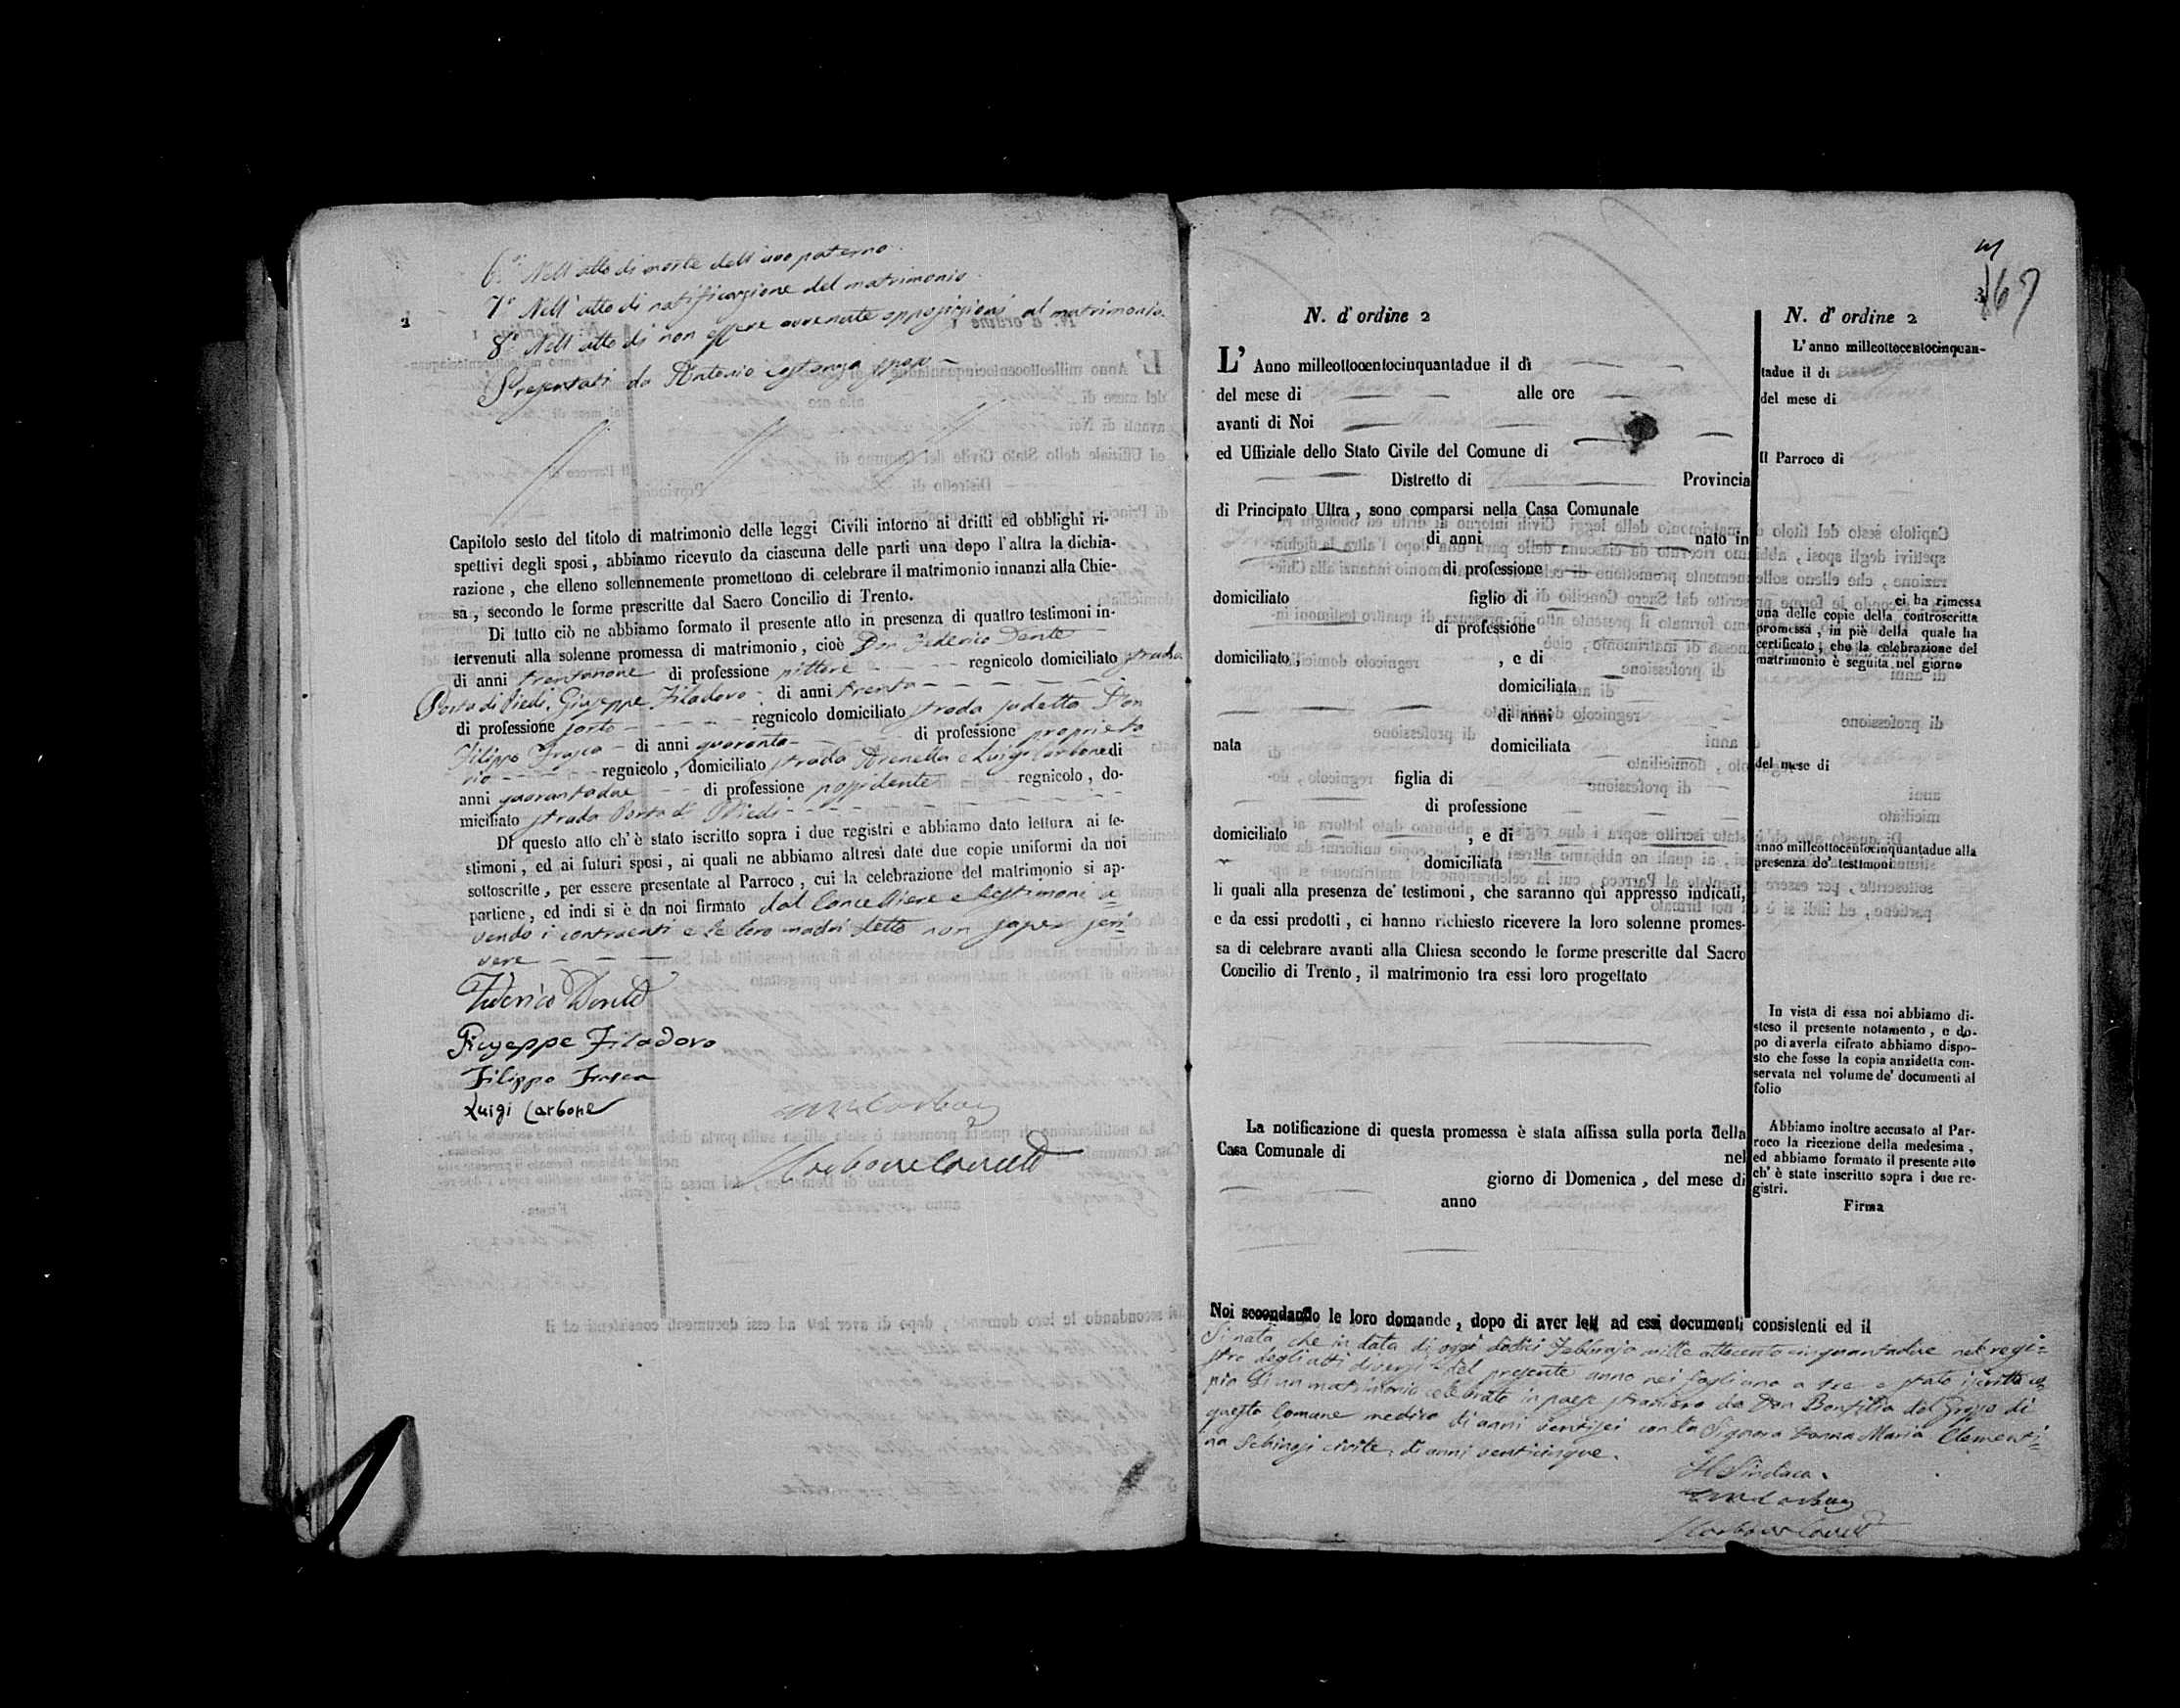 6.° Nell'atto di morte dell'avo paterno.
7° Nell'atto di notificazione del matrimonio.
8° Nell'atto di non essere avvenute opposizioni al matrimonio.
Presentati da Antonio sposo
Capitolo sesto del titolo di matrimonio delle leggi Civili intorno ai dritti ed obblighi ri-
spettivi degli sposi, abbiamo ricevuto da ciascuna delle parti una dopo l'altra la dichia-
razione, che elleno sollennemente promettono di celebrare il matrimonio innanzi alla Chie-
sa, secondo le forme prescritte dal Sacro Concilio di Trento.
Di tutto ciò ne abbiamo formato il presente atto in presenza di quattro testimoni in-
tervenuti alla solenne promessa di matrimonio, cioè Don Federico Dente
di anni trentanove di professione pittore regnicolo domiciliato strada
Porta di Piedi, Giuseppe Filadoro di anni trenta
di professione sarto regnicolo domiciliato strada sudetta Don
Filippo Frasca di anni quaranta di professione proprieta
rio regnicolo, domiciliato strada Arenella e Luigi Carbone di
anni quarantadue di professione possidente regnicolo, do-
miciliato strada Porta di Piedi
Di questo atto ch'è stato iscritto sopra i due registri e abbiamo dato lettura ai te-
stimoni, ed ai futuri sposi, ai quali ne abbiamo altresì date due copie uniformi da noi
sottoscritte, per essere presentate al Parroco, cui la celebrazione del matrimonio si ap-
partiene, ed indi si è da noi firmato dal Cancelliere e testimoni a=
vendo i contraenti e le loro madri detto non saper scri=
vere
Federico Dente
Giuseppe Filadoro
Filippo Frasca
Luigi Carbone
167
N. d'ordine 2
L' Anno millottocentocinquantadue il dì
del mese di alle ore
avanti di Noi
ed Uffiziale dello Stato Civile del Comune di
Distretto di Provincia
di Principato Ultra, sono comparsi nella Casa Comunale
di anni nato in
di professione
domiciliato figlio di
di professione
domiciliato, , e di
domiciliata
di anni
nata domiciliata
figlia di
di professione
domiciliato , e di
domiciliata
li quali alla presenza de' testimoni, che saranno quì appresso indicati,
e da essi prodotti, ci hanno richiesto ricevere la loro solenne promes-
sa di celebrare avanti alla Chiesa secondo le forme prescritte dal Sacro
Concilio di Trento, il matrimonio tra essi loro progettato
La notificazione di questa promessa è stata affissa sulla porta della
Casa Comunale di nel
giorno di Domenica, del mese di
anno
N. d'ordine 2
L'anno milleottocentocinquan-
tadue il dì
del mese di
Il Parroco di
ci ha rimessa
una delle copie della controscritta
promessa, in piè della quale ha
certificato, che la celebrazione del
matrimonio è seguita nel giorno
del mese di
anno milleottocentocinquantadue alla
presenza de' testimoni
In vista di essa noi abbiamo di-
steso il presente notamento, e do-
po di averla cifrato abbiamo dispo-
sto che fosse la copia anzidetta con-
servata nel volume de' documenti al
folio
Abbiamo inoltre accusato al Par-
roco la ricezione della medesima,
ed abbiamo formato il presente atto
ch'è stato inscritto sopra i due re-
gistri.
Firma
Noi secondando le loro domande, dopo di aver lett ad essi documenti consistenti ed il
Si nota che in data di oggi dodici Febbrajo mille ottocento cinquantadue nel regi=
stro degli atti diversi del presente anno nei fogli uno a tre è stato iscritto co
pia di un matrimonio celebrato in paese straniero da Don Bonfilio del Grosso di
questo Comune medico di anni ventisei con la Signora Donna Maria Clementi=
na Schinosi civile, di anni venticinque.
Il Sindaco